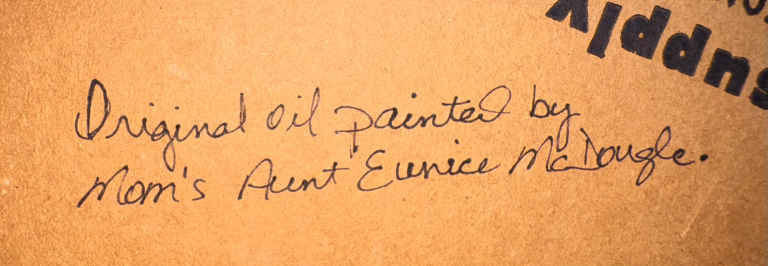 Supply
Original oil painted by
Mom's Aunt Eunice McDougle.